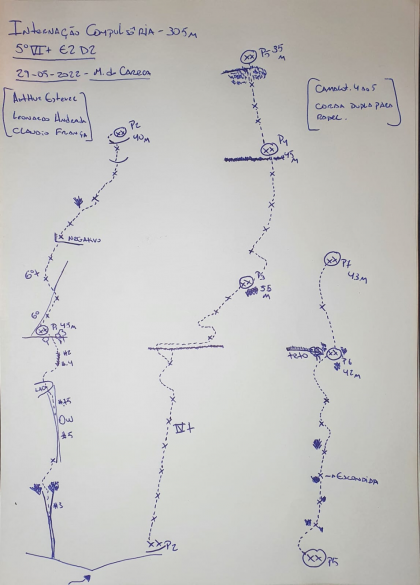 INTERNAÇÃO COMPULSÓRIA - 305m
5º VI+ E2 D2
29-05-2022 - M. da CARECA
ARTHUR ESTEVEZ
LEONARDO ANDRADE
CLAUDIO FRANÇA
CAMALOT. 4 ao 5
CORDA DUPLA PARA
RAPEL.
P5 35
M
P2
40M
P4
45M
NEGATIVO
6º+
6º
P1 45M
P3
55
M
P7
43M
TETO
P6
42M
#2
#4
LACA
OW
#5
#3
IV+
ESCONDIDA
P2
P5